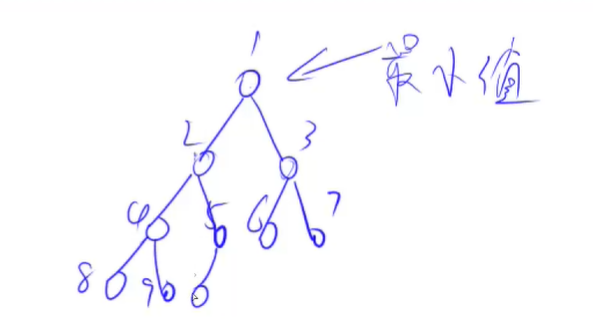 1
最小值
2
3
4
5
6
7
8
9